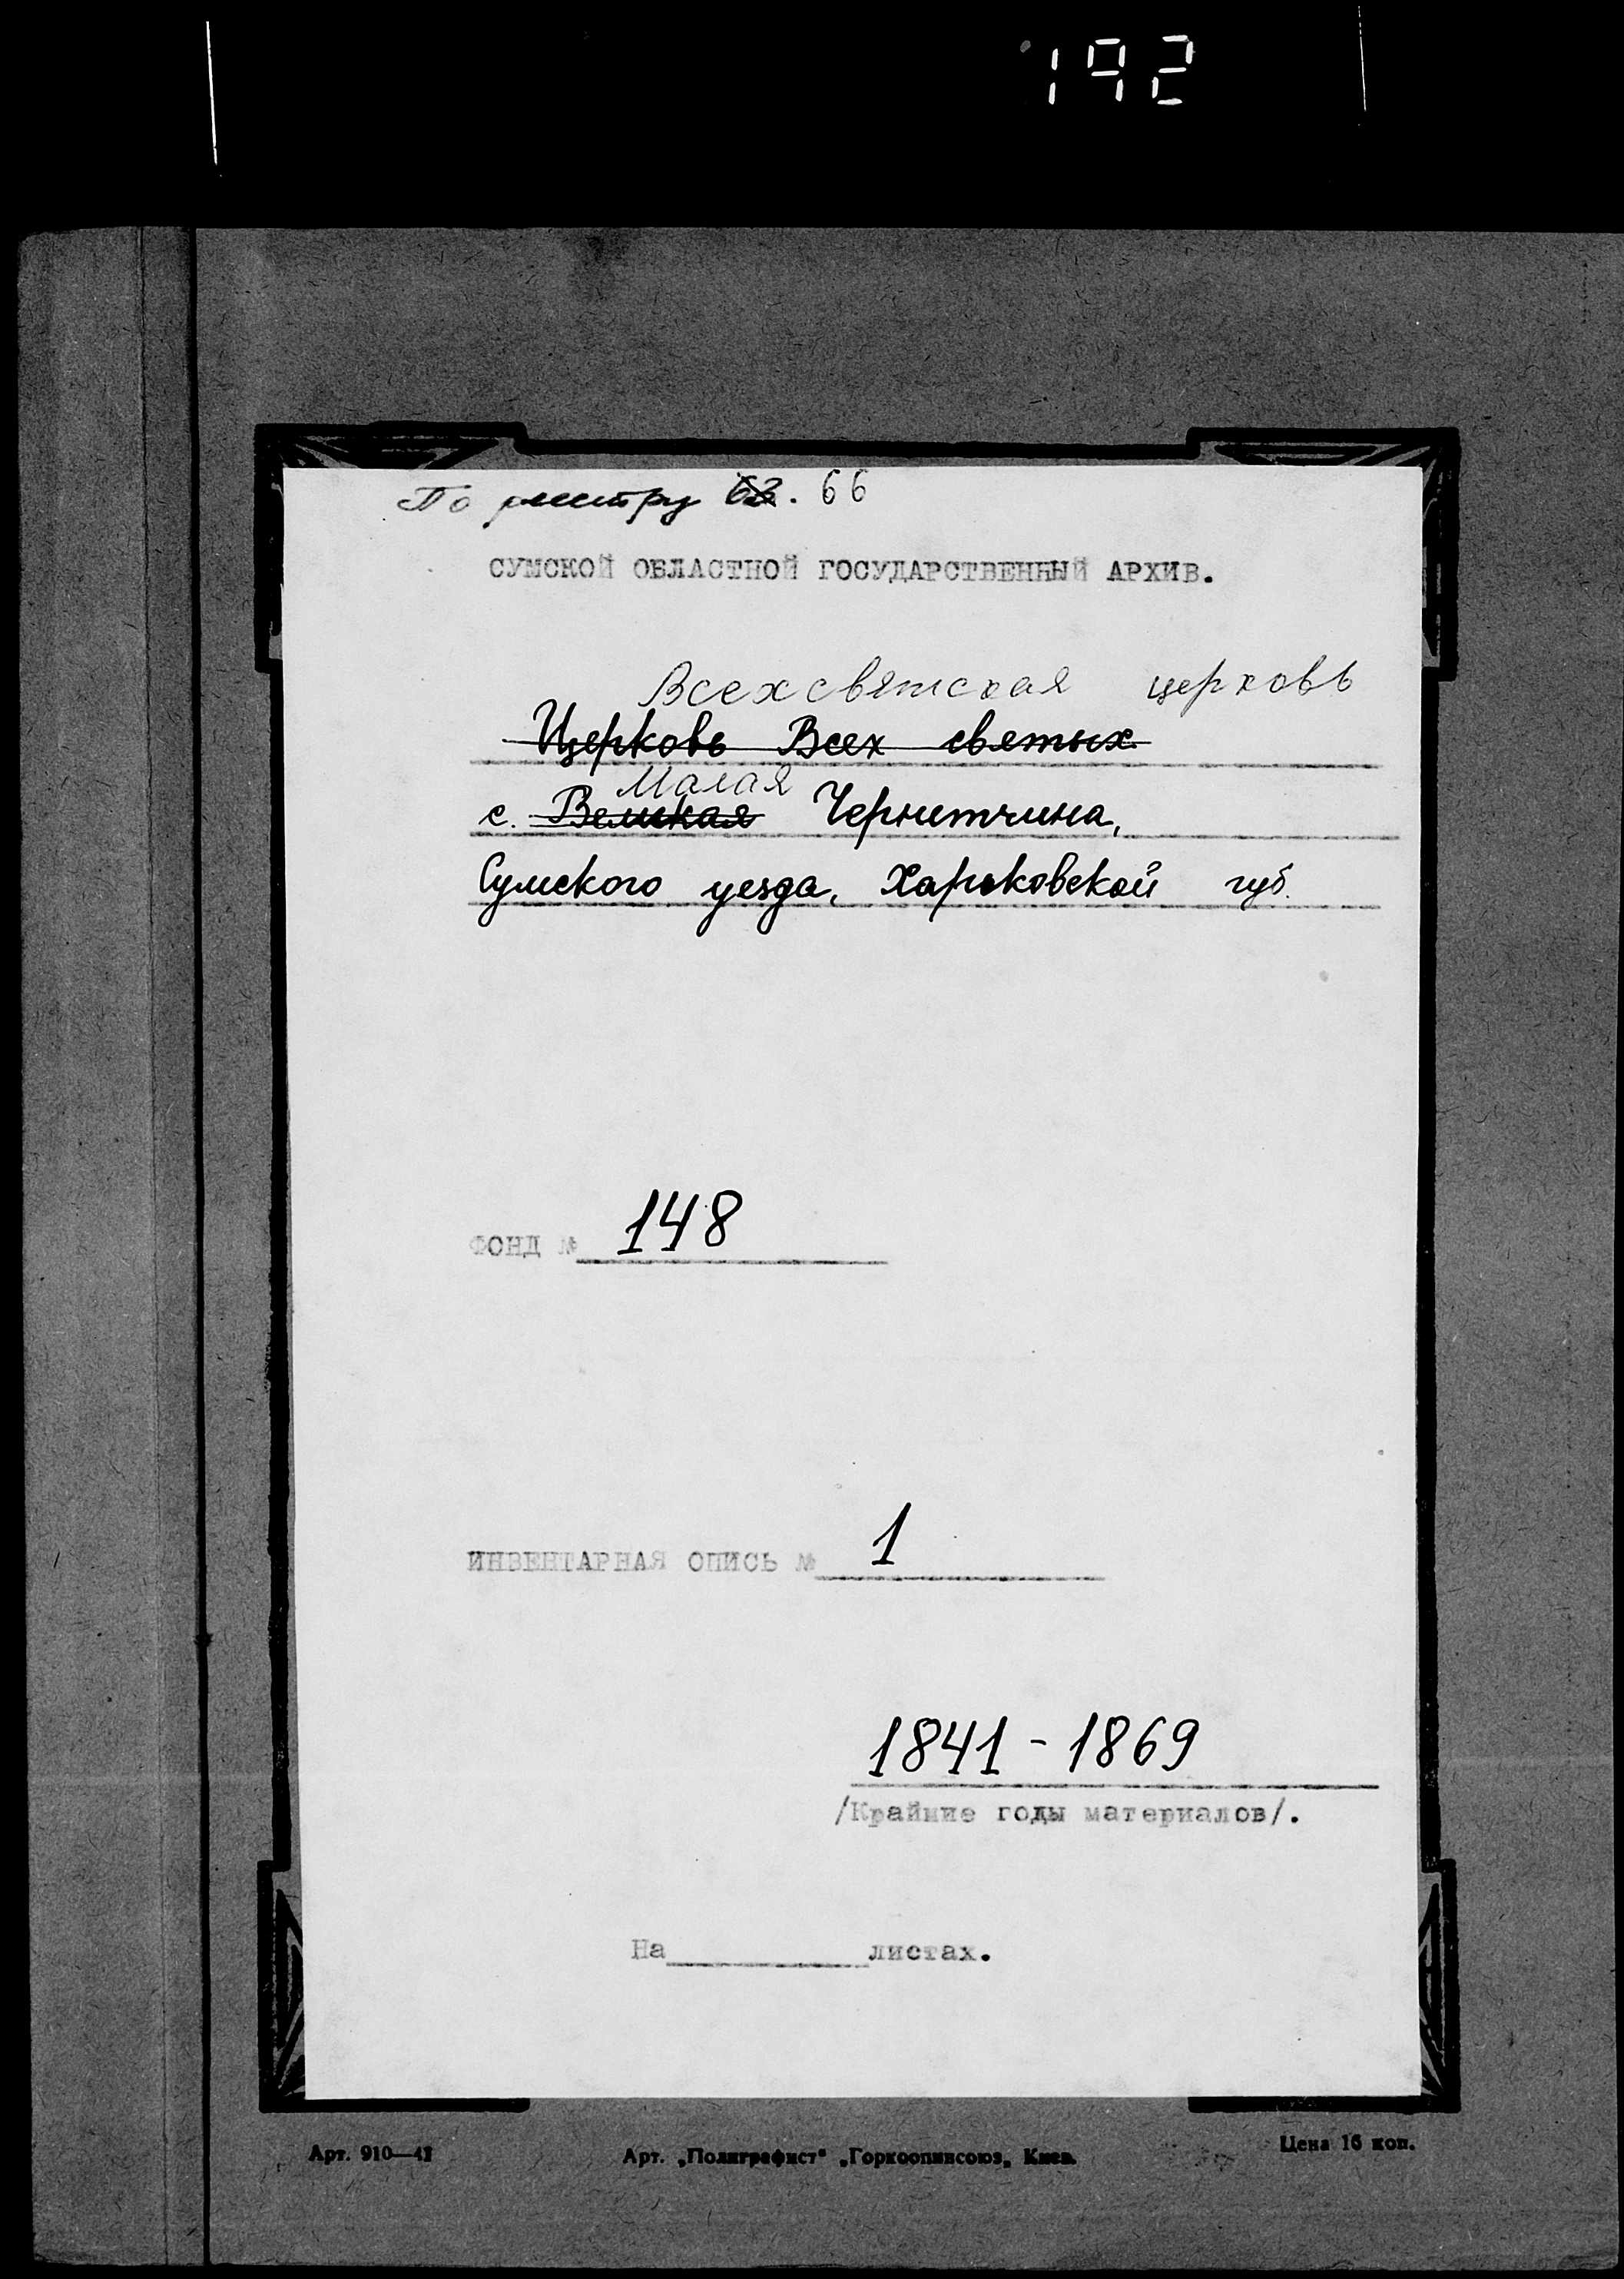 192
По реестру 63. 66
СУМСКОЙ ОБЛАСТНОЙ ГОСУДАРСТВЕННЫЙ АРХИВ.
Всехсвятская церковь
Церковь Всех святых
Малая
с. Великая Чернетчина,
Сумского уезда, Харьковской губ.
ФОНД № 148
ИНВЕНТАРНАЯ ОПИСЬ № 1
1841 - 1869
/Крайние годы материалов/.
На листах.
Арт. 910—41 Арт. „Полиграфист“ „Горкоопинсоюз„ Киев. Цена 16 коп.